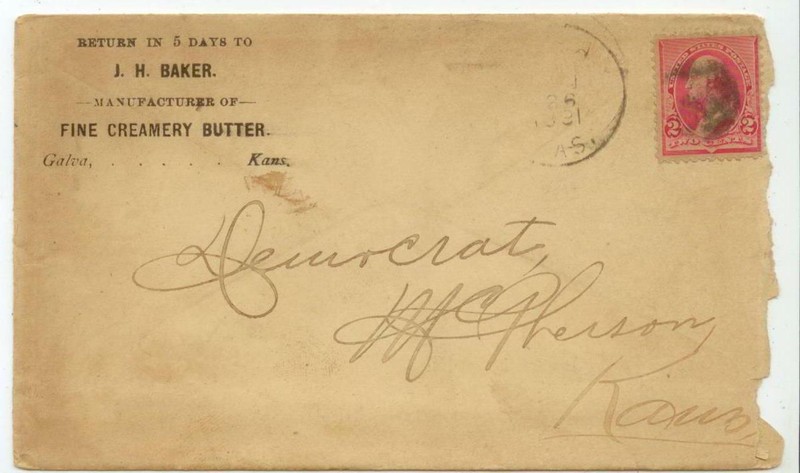 RETURN IN 5 DAYS TO
J. H. BAKER.
—MANUFACTURER OF—
FINE CREAMERY BUTTER.
Galva, . . . . . Kans.
UNITED STATES POSTAGE
2 2
TWO CENTS
Democrat,
McPherson,
Kans